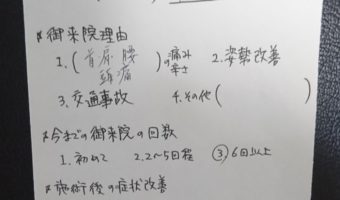 ☆御来院理由
1.(首肩腰 頭痛)の痛み 辛さ 2.姿勢改善
3.交通事故 4.その他( )
☆今までの御来院の回数
1.初めて 2.2〜5回程 ③.6回以上
☆施術後の症状改善